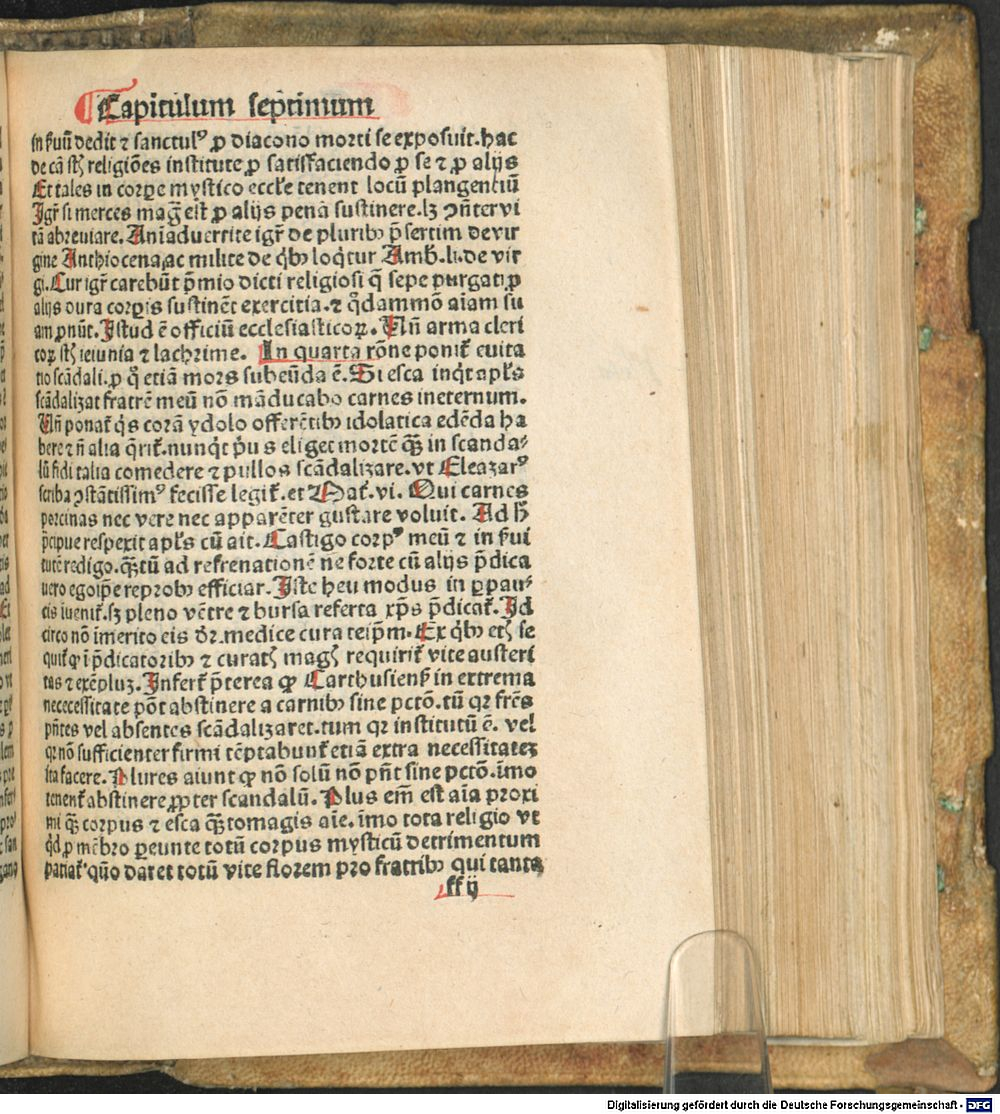 Capitulum septimum
in ẜuū dedit ⁊ sanctulꝰ ꝓ diacono morti se exposuit. hac
de cā st̃ religiōes institute ꝓ satisfaciendo ꝓ se ⁊ ꝓ alijs
Et tales in corpe mystico eccłe tenent locū plangentiū
Igr̃ si merces mag̃ est ꝓ alijs penā sustinere. lꝫ ꝯñter vi
tā abreuiare. Aniaduertite igr̃ de pluribꝫ p̄sertim de vir
gine Anthiocena, ac milite de q̇bꝫ loq̇tur Amb̄. li. de vir
gi. Cur igr̃ carebūt p̄mio dicti religiosi q̄ sepe purgati ꝓ
alijs dura corꝑis sustinēt exercitia. ⁊ q̇dammō aīam su
am ꝓnūt. Istud ē officiū ecclesiasticoꝝ. Vn̄ arma cleri
coꝝ st̃ ieiunia ⁊ lachrime. In quarta rōne ponit᷑ euita
tio scādali. ꝓ q̊ etiā mors subeūda ē. Si esca inq̇t apłs
scādalizat fratrē meū nō māducabo carnes ineternum.
Vn̄ ponat᷑ q̇s corā ydolo offerētibꝫ idolatica edēda ha
bere ⁊ n̄ alia q̄rit᷑. nunq̇t pꝰus eliget mortē q̄ꝫ in scanda⸗
lū fidi talia comedere ⁊ pullos scādalizare. vt Eleazarꝰ
scriba ꝯstātissimꝰ fecisse legit᷑. et Mac̄. vi. Qui carnes
porcinas nec vere nec apparēter gustare voluit. Ad h̄
p̄cipue respexit apłs cū ait. Castigo corpꝰ meū ⁊ in ẜui
tutē redigo. q̄ꝫtū ad refrenationē ne forte cū alijs p̄dica
uero egoip̄e reprobꝰ efficiar. Iste heu modus in ꝑpau⸗
cis iuenit᷑. sꝫ pleno vētre ⁊ bursa referta xp̄s p̄dicat᷑. Id
circo nō īmerito eis dr̄. medice cura teip̄m. Ex q̇bꝫ etꝫ se
quit᷑ ꝙ ī p̄dicatoribꝫ ⁊ curatꝭ magꝭ requirit᷑ vite austeri
tas ⁊ exēpluꝫ. Infert᷑ p̄terea ꝙ Carthusienẜ in extrema
nececessitate pōt abstinere a carnibꝫ sine pctō. tū qr frēs
pn̄tes vel absentes scādalizaret. tum qr institutū ē. vel
qr nō sufficienter firmi tēptabunt᷑ etiā extra necessitateꝫ
ita facere. Plures aiunt ꝙ nō solū nō pn̄t sine pctō. īmo
tenent᷑ abstinere ꝓpter scandalū. Plus em̄ est aīa proxi
mi q̄ꝫ corpus ⁊ esca q̄ꝫtomagis aīe. īmo tota religio vt
q̇d ꝓ mēbro ꝑeunte totū corpus mysticū detrimentum
patiat᷑. quō daret totū vite florem pro fratribꝫ qui tanta
ff ij
Digitalisierung gefördert durch die Deutsche Forschungsgemeinschaft - DFG